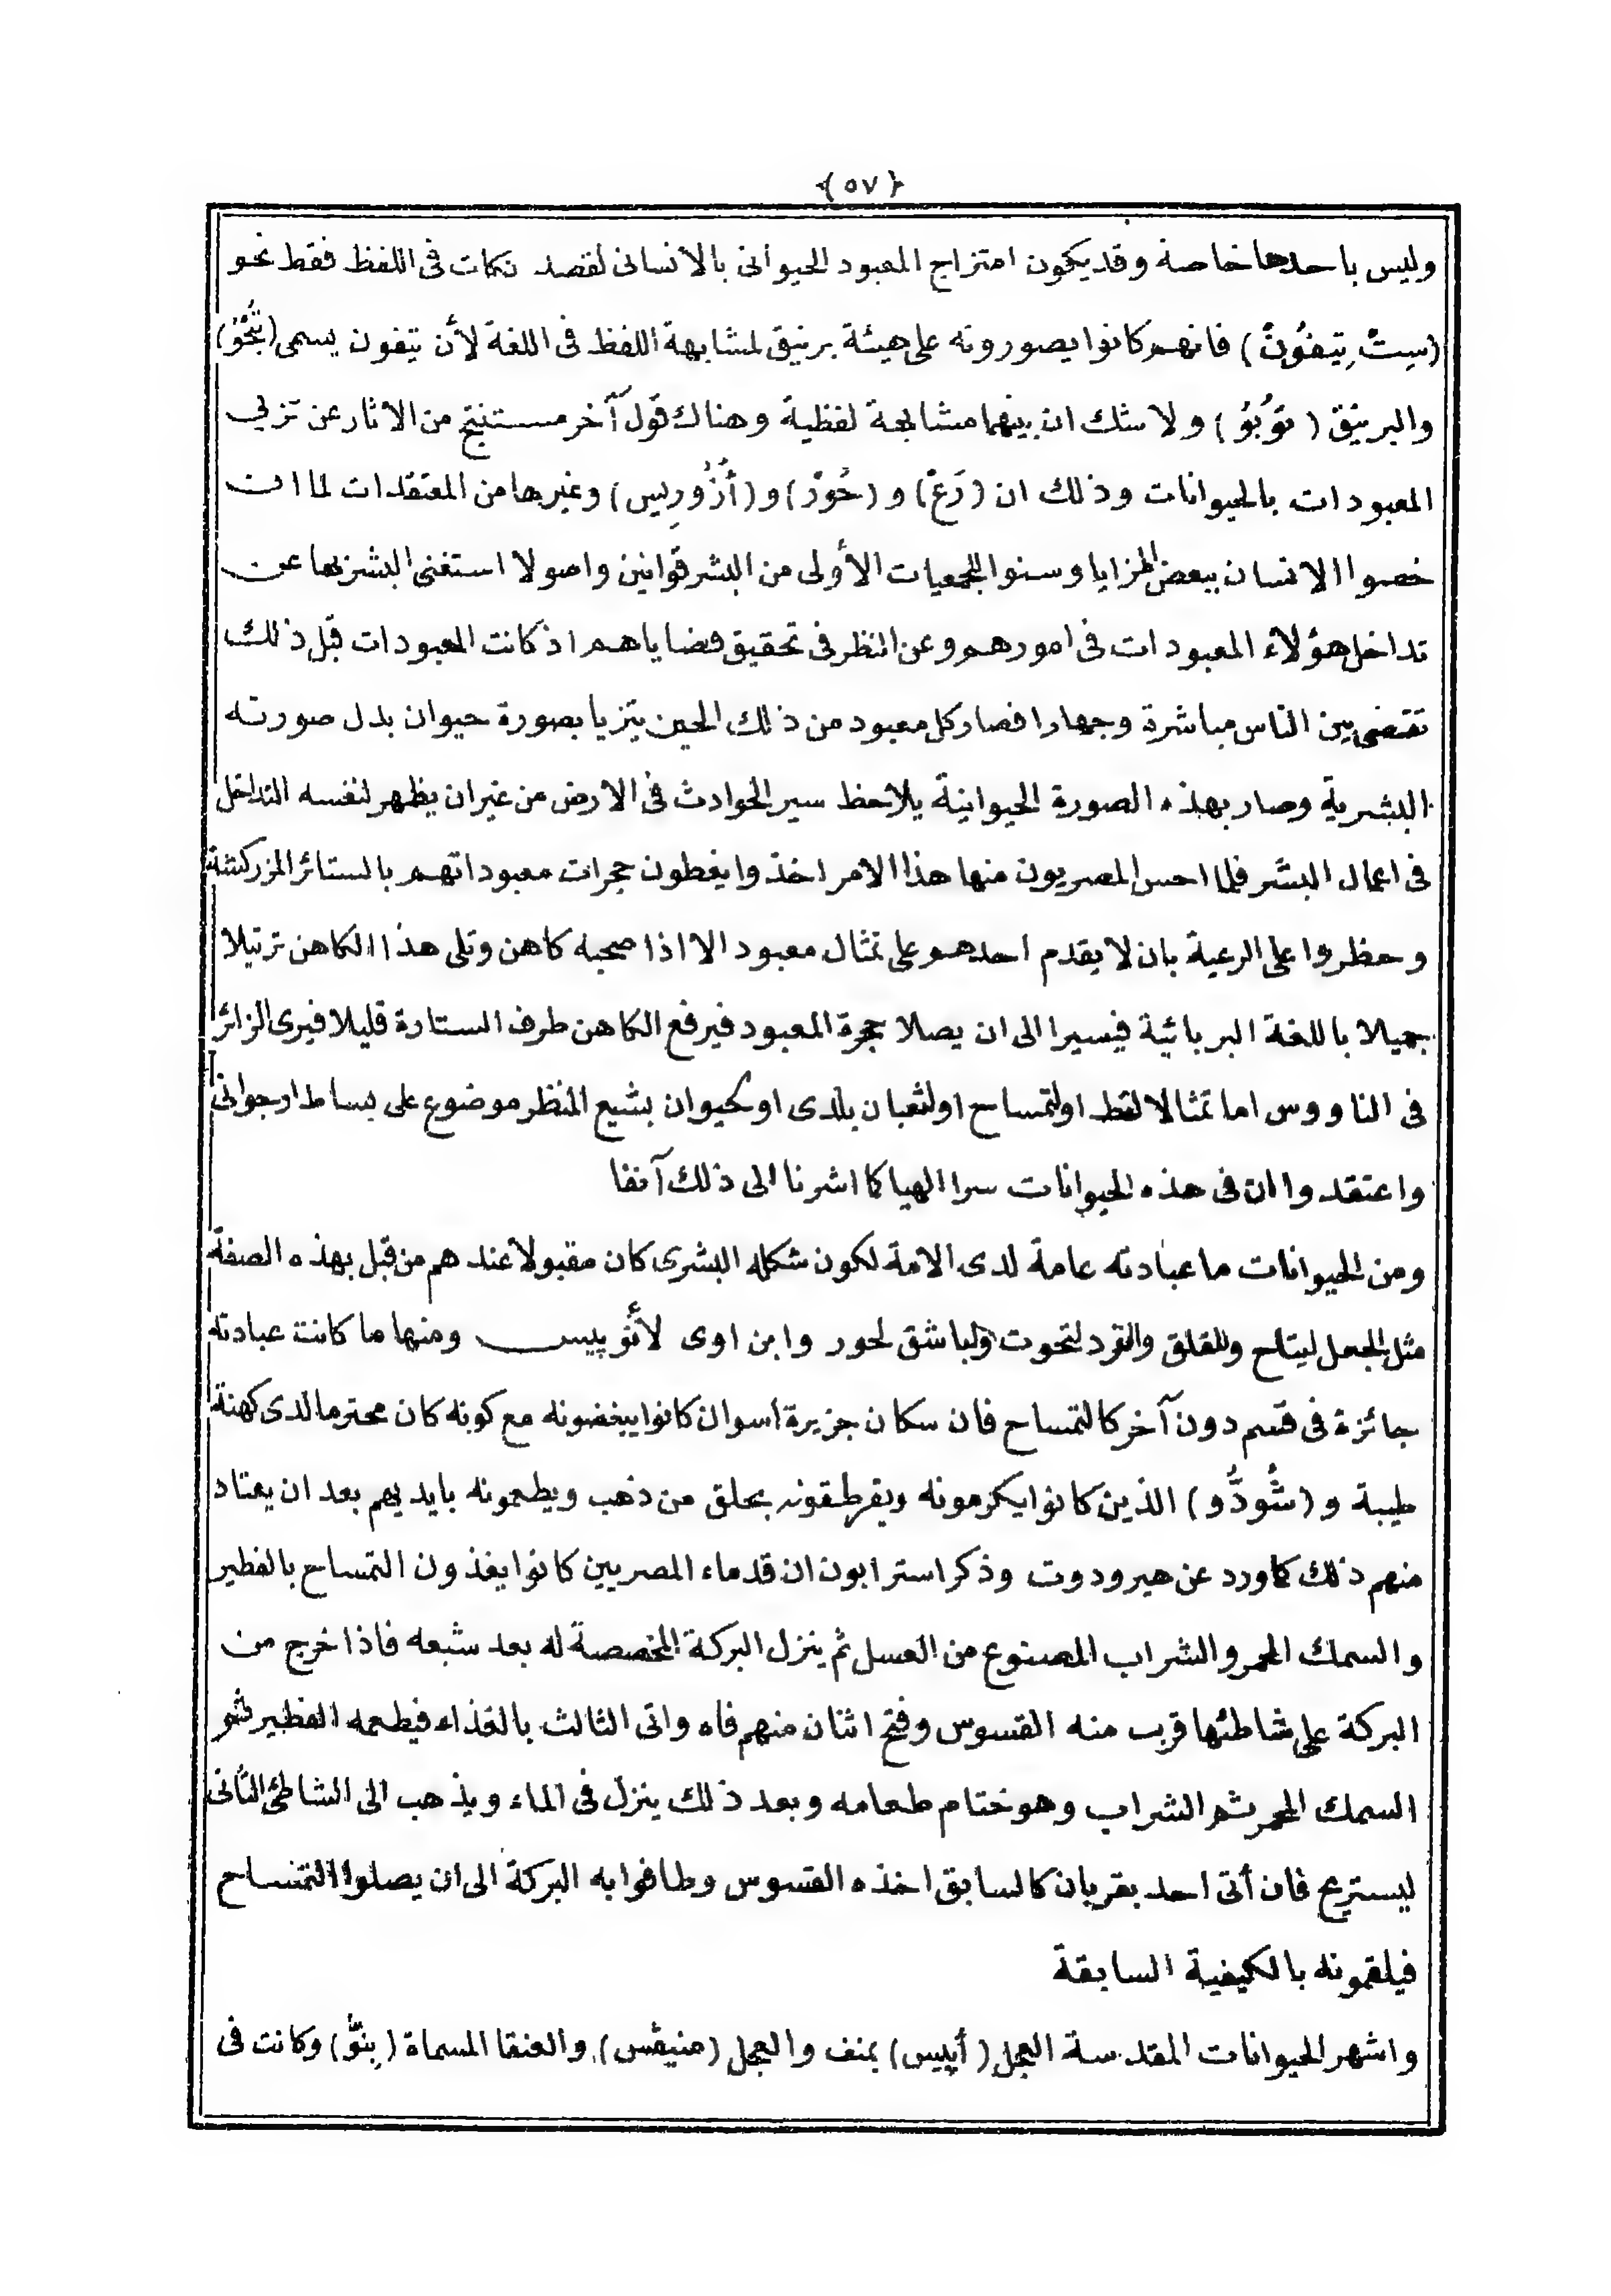 {٥٧}
وليس باحدها خاصة وقد يكون امتزاج المعبود الحيوانى بالانسانى لقصد نكات فى اللفظ فقط نحو
(سِتْ تِيفُونْ) فانهم كانوا يصورونه على هيئة برنيق لمشابهة اللفظ فى اللغة لأن تيفون يسمى
والبرنيق (تَوُبُو) ولا شك ان بينهما مشابهة لفظية وهناك قول آخر مستنتج من الاثار عن تزيى
المعبودات بالحيوانات وذلك ان (رَعْ) و(حُورْ) و(أُزُورِيس) وغيرها من المعتقدات لما ان
خصوا الانسان ببعض المزايا وسنوا للجمعيات الأولى من البشر قوانين واصولا استغنى البشر بها عن
تداخل هؤلاء المعبودات فى امورهم وعن النظر فى تحقيق قضاياهم اذ كانت المعبودات قبل ذلك
تقضى بين الناس مباشرة وجهارا فصار كل معبود من ذلك الحين يتزيا بصورة حيوان بدل صورته
البشرية وصار بهذه الصورة الحيوانية يلاحظ سير الحوادث فى الارض من غير ان يظهر لنفسه التداخل
فى اعمال البشر فلما احس المصريون منها هذا الامر اخذوا يغطون حجرات معبوداتهم بالستائر المزركشة
وحظروا على الرعية بان لا يقدم احدهم على تمثال معبود الا اذا صحبه كاهن وتلى هذا الكاهن ترتيلا
جميلا باللغة البربائية فيسيرا الى ان يصلا حجرة المعبود فيرفع الكاهن طرف الستارة قليلا فيرى الزائر
فى الناووس اما تمثالا لقط او لتمساح او لثعبان بلدى او لحيوان بشيع المنظر موضوع على بساط ارجوانى
واعتقدوا ان فى هذه الحيوانات سرا الهيا كما اشرنا الى ذلك آنفا
ومن الحيوانات ما عبادته عامة لدى الامة لكون شكله البشرى كان مقبولا عندهم من قبل بهذه الصفة
مثل الجعل ليتاح وللقلق والقرد لتحوت والباشق لحور وابن اوى لأنوبيس ومنها ما كانت عبادته
جائزة فى قسم دون آخر كالتمساح فان سكان جزيرة اسوان كانوا يبغضونه مع كونه كان محترما لدى كهنة
طيبة و(شُودُّو) الذين كانوا يكرمونه ويقرطقونه بحلق من ذهب ويطعمونه بايديهم بعد ان يعتاد
منهم ذلك كما ورد عن هيرودوت وذكر استرابون ان قدماء المصريين كانوا يغذون التمساح بالفطير
والسمك المحمر والشراب المصنوع من العسل ثم ينزل البركة المخصصة له بعد شبعه فاذا خرج من
البركة على شاطئها قرب منه القسوس وفتح اثنان منهم فاه واتى الثالث بالغذاء فيطعمه الفطير ثم
السمك المحمر ثم الشراب وهو ختام طعامه وبعد ذلك ينزل فى الماء ويذهب الى الشاطئ الثانى
ليستريح فان أتى احد بقربان كالسابق اخذه القسوس وطافوا به البركة الى ان يصلوا التمساح
فيلقمونه بالكيفية السابقة
واشهر الحيوانات المقدسة العجل (أپيس) بمنف والعجل (منيفس) والعنقا المسماة (بِنُّو) وكانت فى